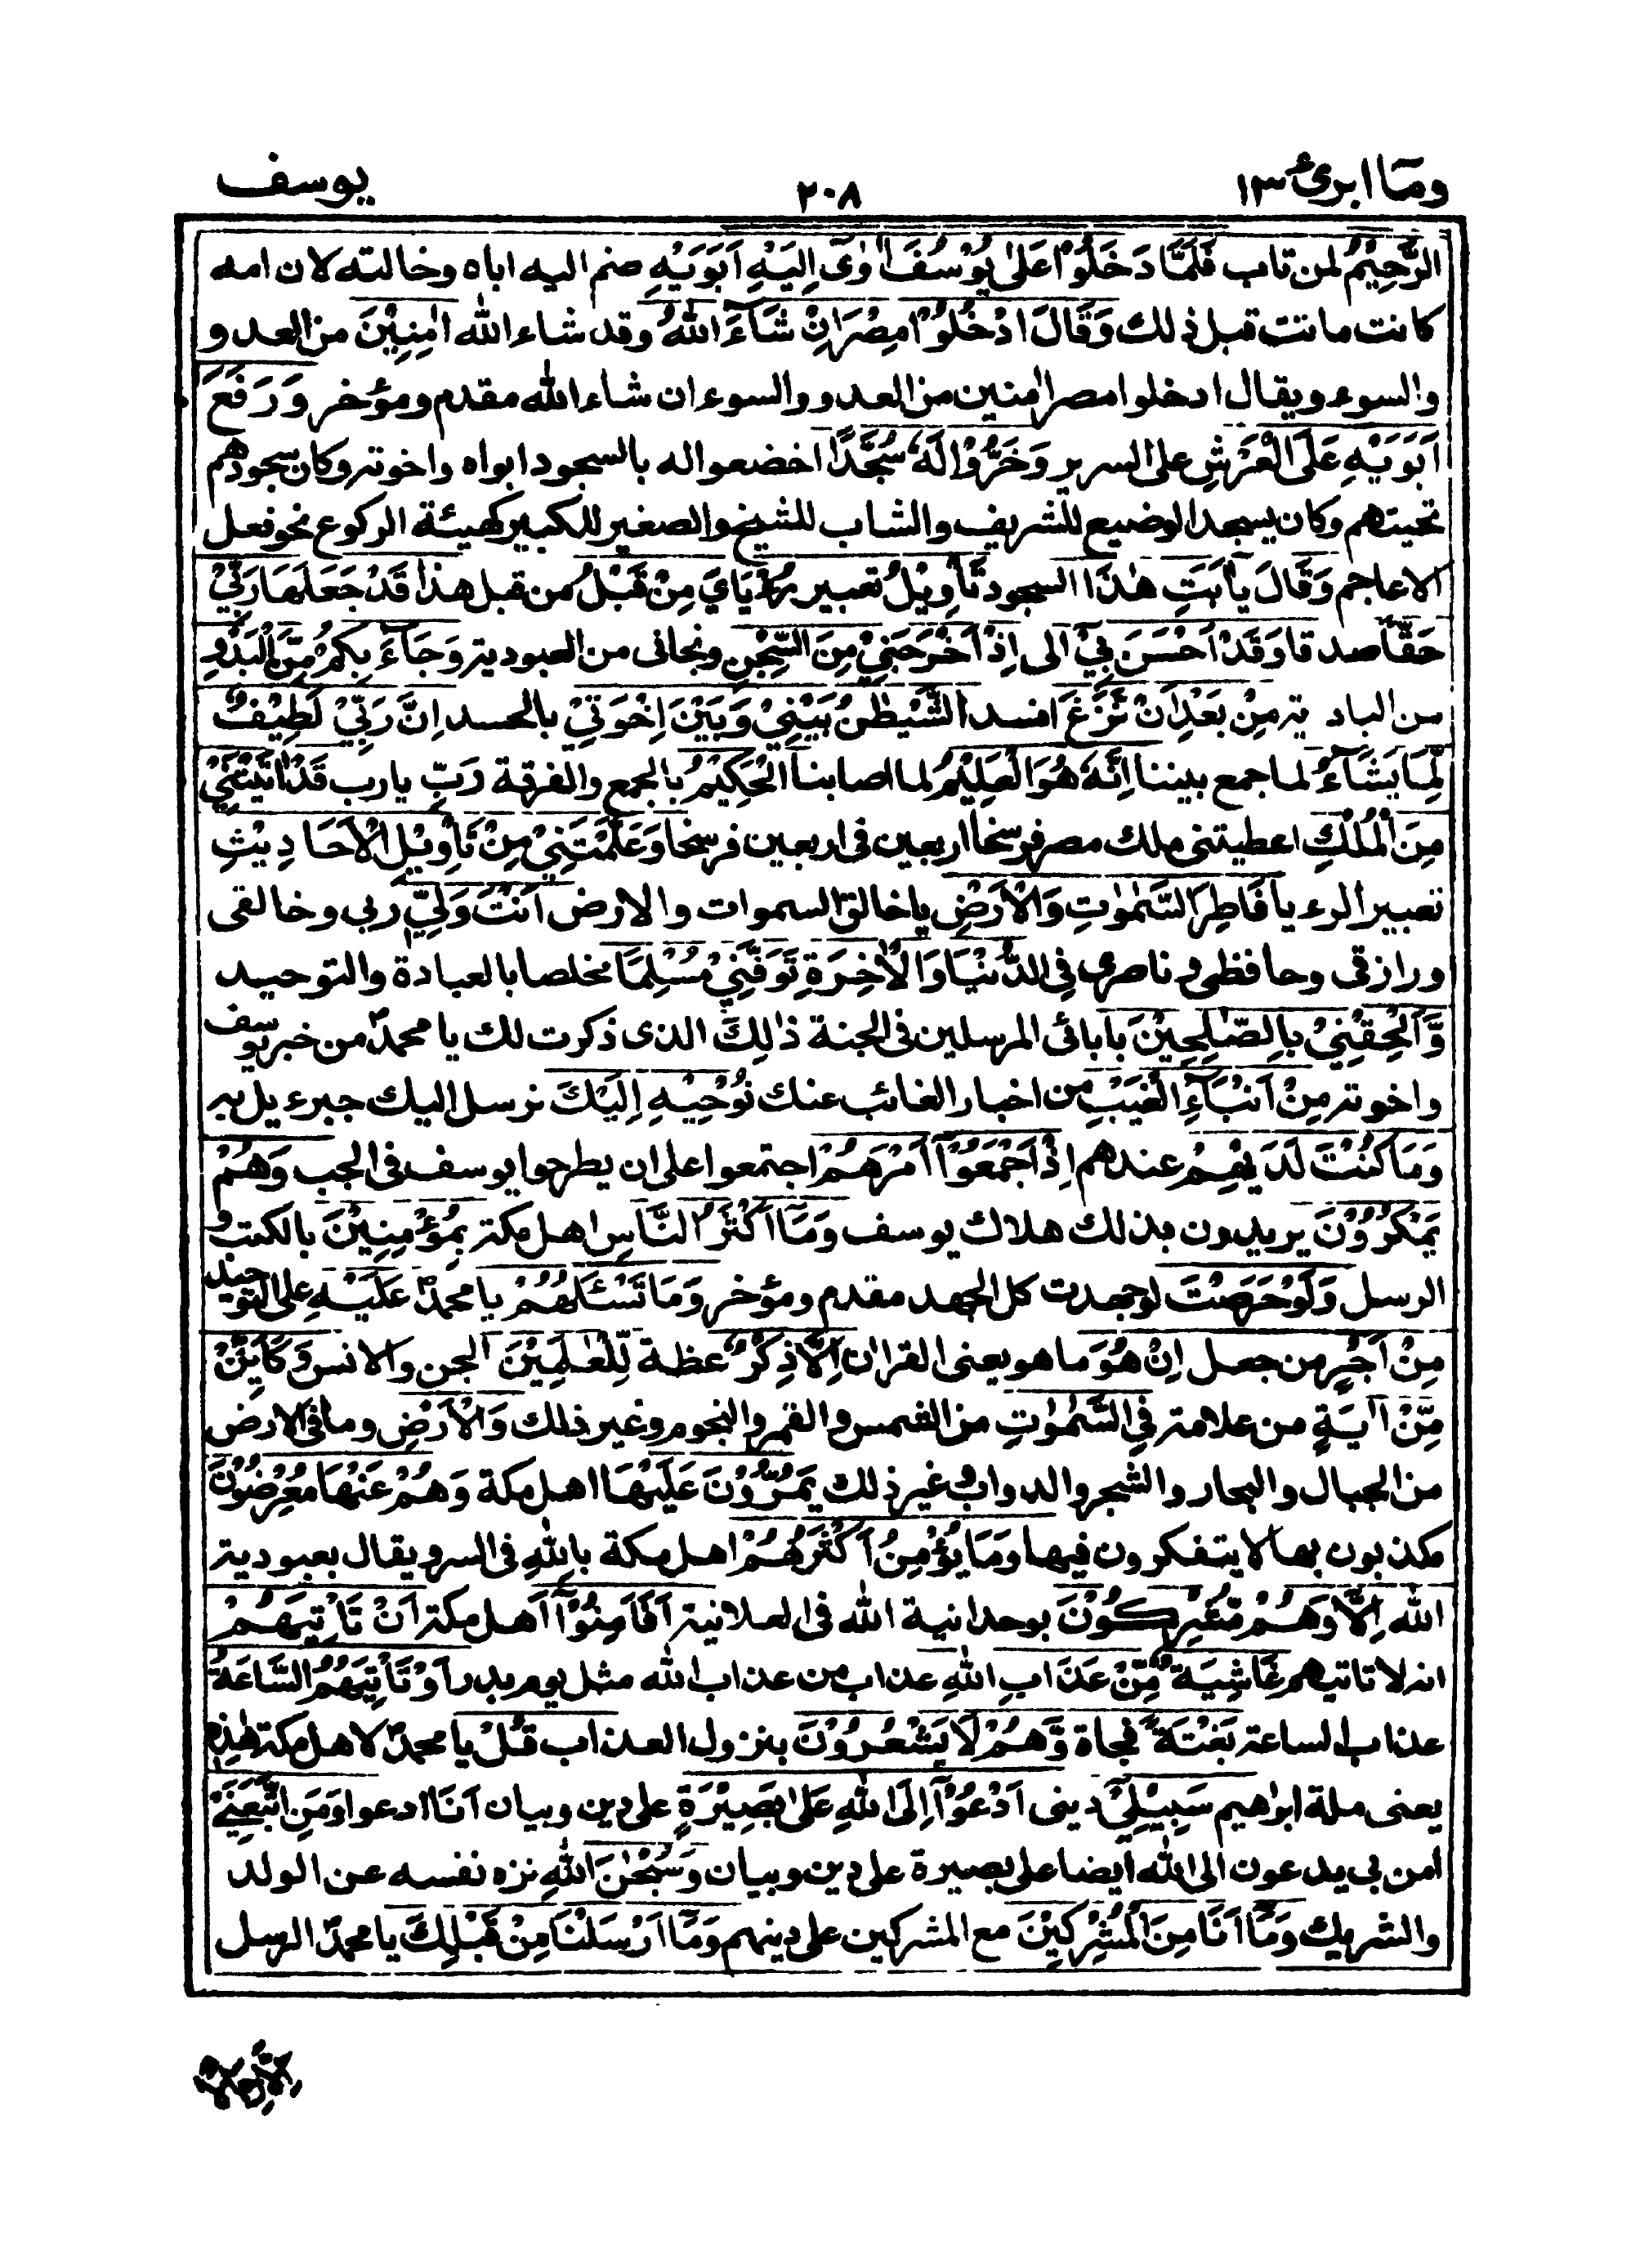 وما ابرئ ١٣
٢٠٨
يوسف
الرَّحِيْمُ لمن تاب فَلَمَّا دَخَلُوْا عَلٰى يُوْسُفَ اٰوٰٓى اِلَيْهِ اَبَوَيْهِ ضم اليه اباه وخالته لان امه
كانت ماتت قبل ذلك وَقَالَ ادْخُلُوْا مِصْرَ اِنْ شَآءَ اللّٰهُ وقد شاء الله اٰمِنِيْنَ من العدو و
والسوء ويقال ادخلوا مصر اٰمنين من العدو والسوء ان شاء الله مقدم ومؤخر وَرَفَعَ
اَبَوَيْهِ عَلَى الْعَرْشِ على السرير وَخَرُّوْا لَهٗ سُجَّدًا اخضعوا له بالسجود ابواه واخوته وكان سجودهم
تحيتهم وكان يسجد الوضيع للشريف والشاب للشيخ والصغير للكبير كهيئة الركوع نحو فعل
الاعاجم وَقَالَ يٰٓاَبَتِ هٰذَا السجود تَاْوِيْلُ تعبير رُءْيَايَ مِنْ قَبْلُ من قبل هذا قَدْ جَعَلَهَا رَبِّيْ
حَقًّا صدقا وَقَدْ اَحْسَنَ بِيْٓ الى اِذْ اَخْرَجَنِيْ مِنَ السِّجْنِ ونجانى من العبودية وَجَآءَ بِكُمْ مِّنَ الْبَدْوِ
من البادية مِنْ بَعْدِ اَنْ نَّزَغَ افسد الشَّيْطٰنُ بَيْنِيْ وَبَيْنَ اِخْوَتِيْ بالحسد اِنَّ رَبِّيْ لَطِيْفٌ
لِّمَا يَشَآءُ لما جمع بيننا اِنَّهٗ هُوَ الْعَلِيْمُ لما اصابنا الْحَكِيْمُ بالجمع والفرقة رَبِّ يارب قَدْ اٰتَيْتَنِيْ
مِنَ الْمُلْكِ اعطيتنى ملك مصر فرسخا اربعين فى اربعين فرسخا وَعَلَّمْتَنِيْ مِنْ تَاْوِيْلِ الْاَحَادِيْثِ
تعبير الرءيا فَاطِرَ السَّمٰوٰتِ وَالْاَرْضِ يا خالق السموات والارض اَنْتَ وَلِيّٖ ربى وخالقى
ورازقى وحافظى وناصرى فِي الدُّنْيَا وَالْاٰخِرَةِ تَوَفَّنِيْ مُسْلِمًا مخلصا بالعبادة والتوحيد
وَّاَلْحِقْنِيْ بِالصّٰلِحِيْنَ بابائى المرسلين فى الجنة ذٰلِكَ الذى ذكرت لك يا محمدؐ من خبر يوسف
واخوته مِنْ اَنْبَآءِ الْغَيْبِ من اخبار الغائب عنك نُوْحِيْهِ اِلَيْكَ نرسل اليك جبرءيل به
وَمَا كُنْتَ لَدَيْهِمْ عندهم اِذْ اَجْمَعُوْٓا اَمْرَهُمْ اجتمعوا على ان يطرحوا يوسف فى الجب وَهُمْ
يَمْكُرُوْنَ يريدون بذلك هلاك يوسف وَمَآ اَكْثَرُ النَّاسِ اهل مكة بِمُؤْمِنِيْنَ بالكتب و
الرسل وَلَوْ حَرَصْتَ لو جهدت كل الجهد مقدم ومؤخر وَمَا تَسْـَٔلُهُمْ يا محمدؐ عَلَيْهِ على التوحيد
مِنْ اَجْرٍ من جعل اِنْ هُوَ ما هو يعنى القراٰن اِلَّا ذِكْرٌ عظة لِّلْعٰلَمِيْنَ الجن والانس وَكَاَيِّنْ
مِّنْ اٰيَةٍ من علامة فِي السَّمٰوٰتِ من الشمس والقمر والنجوم وغير ذلك وَالْاَرْضِ وما فى الارض
من الجبال والبحار والشجر والدواب وغير ذلك يَمُرُّوْنَ عَلَيْهَا اهل مكة وَهُمْ عَنْهَا مُعْرِضُوْنَ
مكذبون بها لا يتفكرون فيها وَمَا يُؤْمِنُ اَكْثَرُهُمْ اهل مكة بِاللّٰهِ فى السر ويقال بعبودية
الله اِلَّا وَهُمْ مُّشْرِكُوْنَ بوحدانية الله فى العلانية اَفَاَمِنُوْٓا اهل مكة اَنْ تَاْتِيَهُمْ
انه لا تاتيهم غَاشِيَةٌ مِّنْ عَذَابِ اللّٰهِ عذاب من عذاب الله مثل يوم بدر اَوْ تَاْتِيَهُمُ السَّاعَةُ
عذاب الساعة بَغْتَةً فجاة وَّهُمْ لَا يَشْعُرُوْنَ بنزول العذاب قُلْ يا محمدؐ لاهل مكة هٰذِهٖ
يعنى ملة ابرٰهيم سَبِيْلِيْٓ دينى اَدْعُوْٓا اِلَى اللّٰهِ عَلٰى بَصِيْرَةٍ على دين وبيان اَنَا ادعوا وَمَنِ اتَّبَعَنِيْ
اٰمن بى يدعون الى الله ايضا على بصيرة على دين وبيان وَسُبْحٰنَ اللّٰهِ نزه نفسه عن الولد
والشريك وَمَآ اَنَا مِنَ الْمُشْرِكِيْنَ مع المشركين على دينهم وَمَآ اَرْسَلْنَا مِنْ قَبْلِكَ يا محمدؐ الرسل